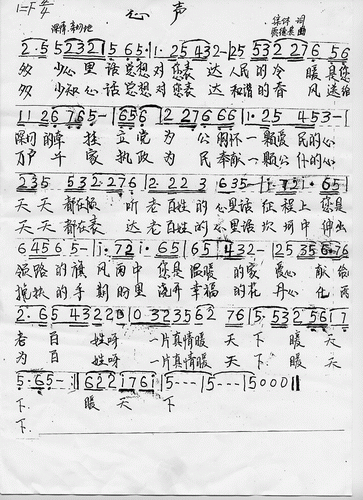 心声
1=F 2/4
深情、亲切地
集体 词
曲
2·5 5232 | 5 65· | 1· 25 432 - | 25 532 276 56
多少心里话想对您表达人民的冷暖是您
多少知心话想对您表达和谐的春风送给
1126 765 - | 656 | 2 27666 | 1· 25 453 - |
深深的牵挂立党为公胸怀一颗爱民的心
万户千家执政为民奉献一颗公仆的心
235 532·276 | 2 22 3 635 - | i· 72 i· 65 |
天天都在听老百姓的心里话征程上您是
天天都在表达老百姓的心里话坎坷中伸出
64565 - | i· 72 i· 65 | 65 432 - | 25 35676
领路的旗风雨中您是温暖的家爱心献给
搀扶的手新的里浇开幸福的花丹心化雨
2· 65 4322 0 | 0 323562 76 | 5· 532 5617
老百姓呀一片真情暖天下暖天
为百姓呀一片真情暖天下暖天
5·65 - :|| 622 176i | 5 - - - | 5 - - - | 5000 ||
下 暖天下
下